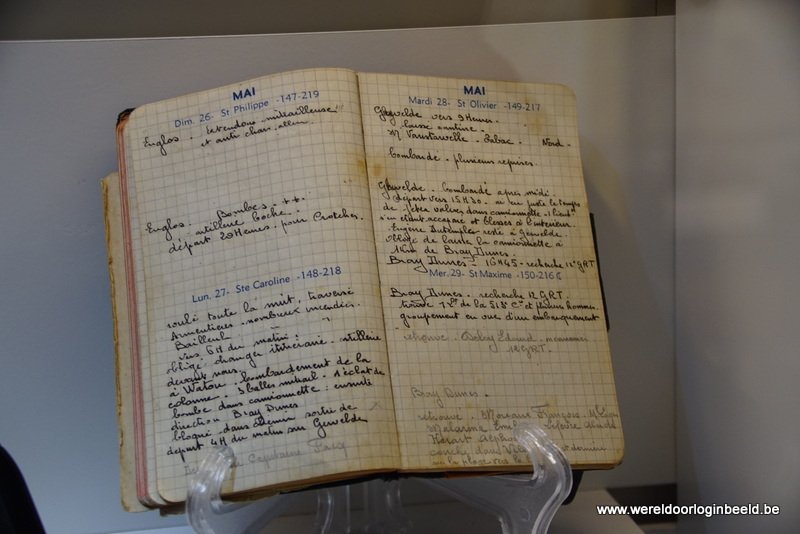 MAI
Dim. 26- St Philippe -147-219
Englos. Entendons mitrailleuse
et anti chars, allem.
Englos. Bombes. ++.
artillerie boche.
départ 20 Heures. pour Crotcher.
Lun. 27- Ste Caroline -148-218
roulé toute la nuit, traversé
Armentières. nombreux incendies.
Bailleul
vers 6H du matin.
obligé changer itinéraire. artillerie
devant nous.
à Watou. bombardement de la
colonne. 3 balles mitrail. 1 éclat de
bombe dans camionnette. ensuite
direction Bray Dunes
bloqué dans chemin sortie de
départ 4H du matin sur Gevelde
Capitaine
MAI
Mardi 28- St Olivier -149-217
Ghyvelde vers 9 Heures.
laissé cantine.
M. Vanstavelle. Tabac. Nord.
bombardé. plusieurs reprises.
Ghyvelde. bombardé après midi.
départ vers 15H30. ai eu juste le temps
de jeter valises dans camionnette. 1 lieut.
s'en étant accessé et blessés à l'intérieur.
Eugène reste à Gevelde.
obligé de laisser la camionnette à
1Km de Bray Dunes.
Bray Dunes. 16H45. recherche 12e GRT
Mer. 29- St Maxime -150-216 ☾
Bray Dunes. recherche 12 GRT.
trouve de la 513e Cie et plusieurs hommes.
groupement en vue d'un embarquement
retrouvé. Edouard
12e GRT.
Bray Dunes.
retrouvé. Moreaux François.
Malarme
couché dans et dernier
sur la plage vers
www.wereldoorloginbeeld.be